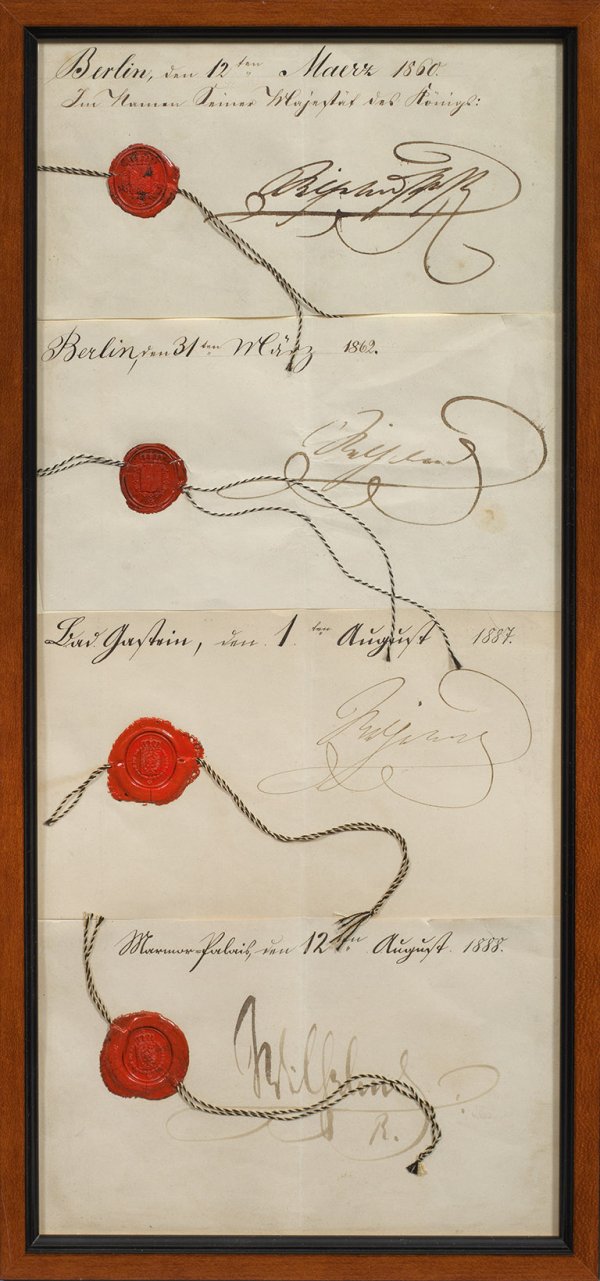 Berlin, den 12ten Maerz 1860.
Im Namen Seiner Majestät des Königs:
Wilhelm
Berlin, den 31ten März 1862.
Wilhelm
Bad Gastein, den 1.ten August 1887.
Wilhelm
Marmor-Palais, den 12ten August 1888.
Wilhelm
R.